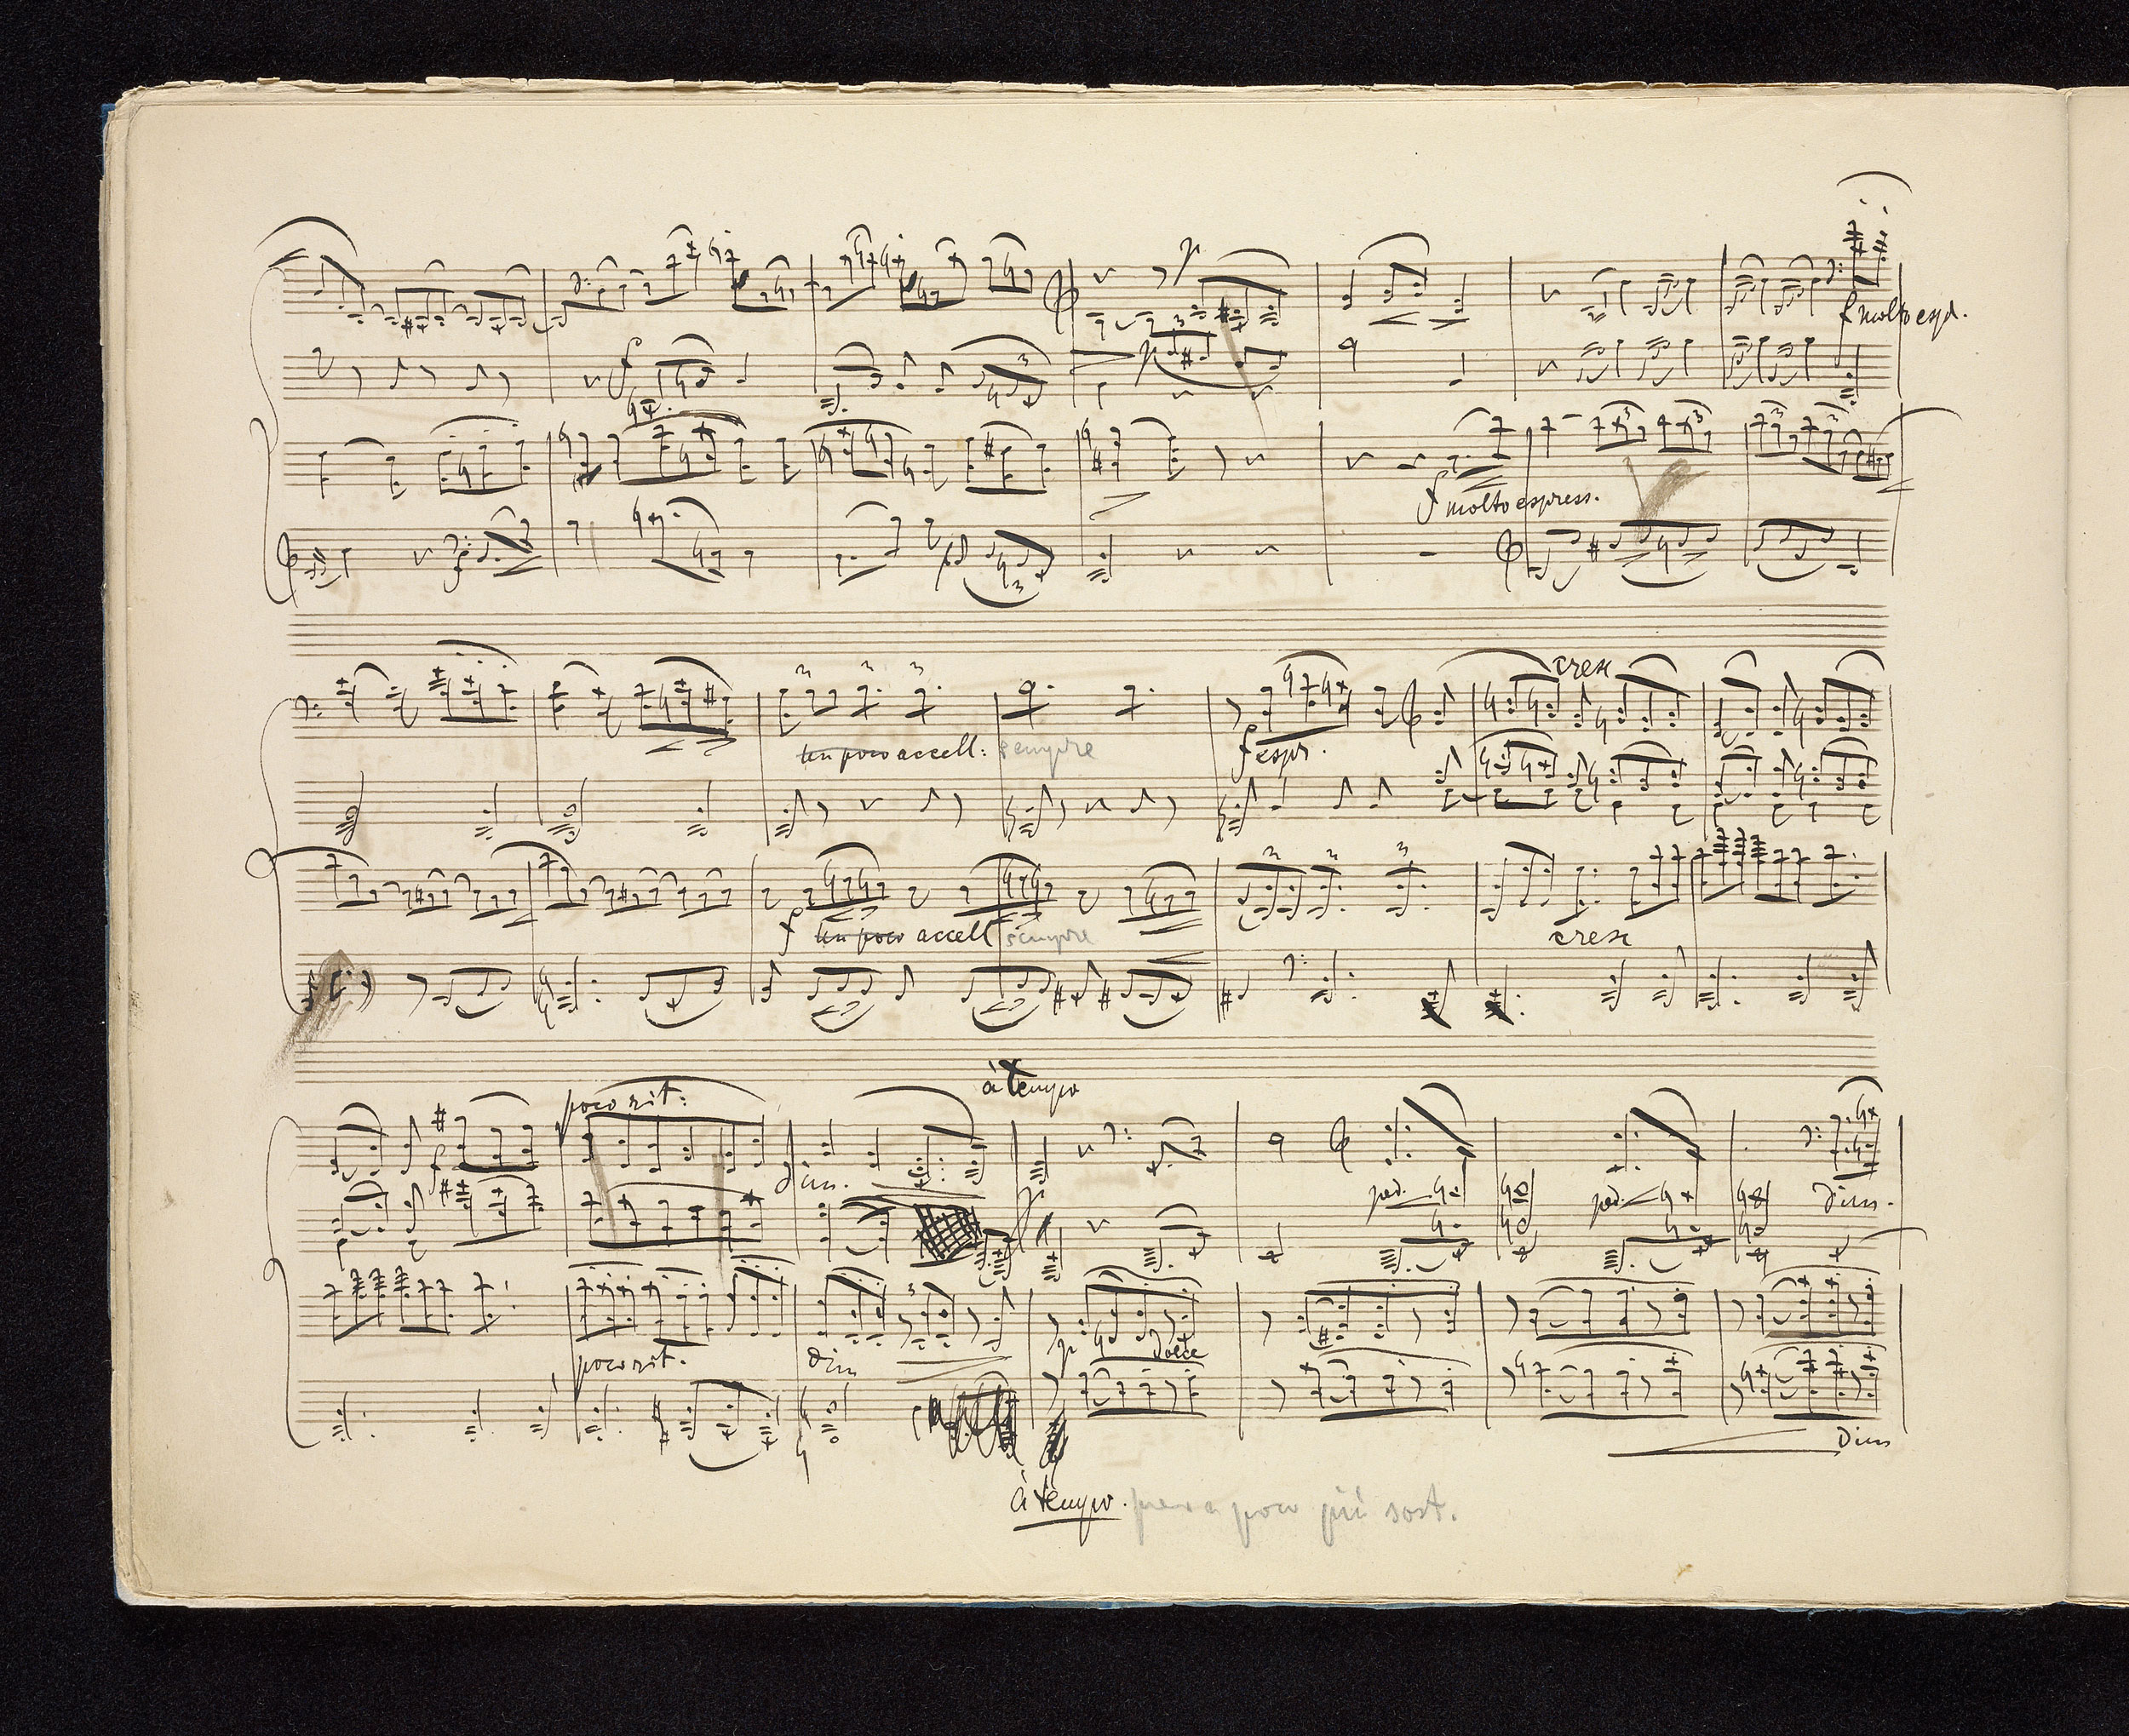 p
f molto esp.
f
3
p
3
f molto express.
3
3
3
3
f
3
3 3 3
cresc
un poco accell: sempre
f espr.
f un poco accell sempre
3 3 3
cresc
à tempo
poco rit:
f
dim.
ped.
ped.
dim.
p
3
poco rit.
dim
p
dolce
dim
à tempo. pero poco più sost.